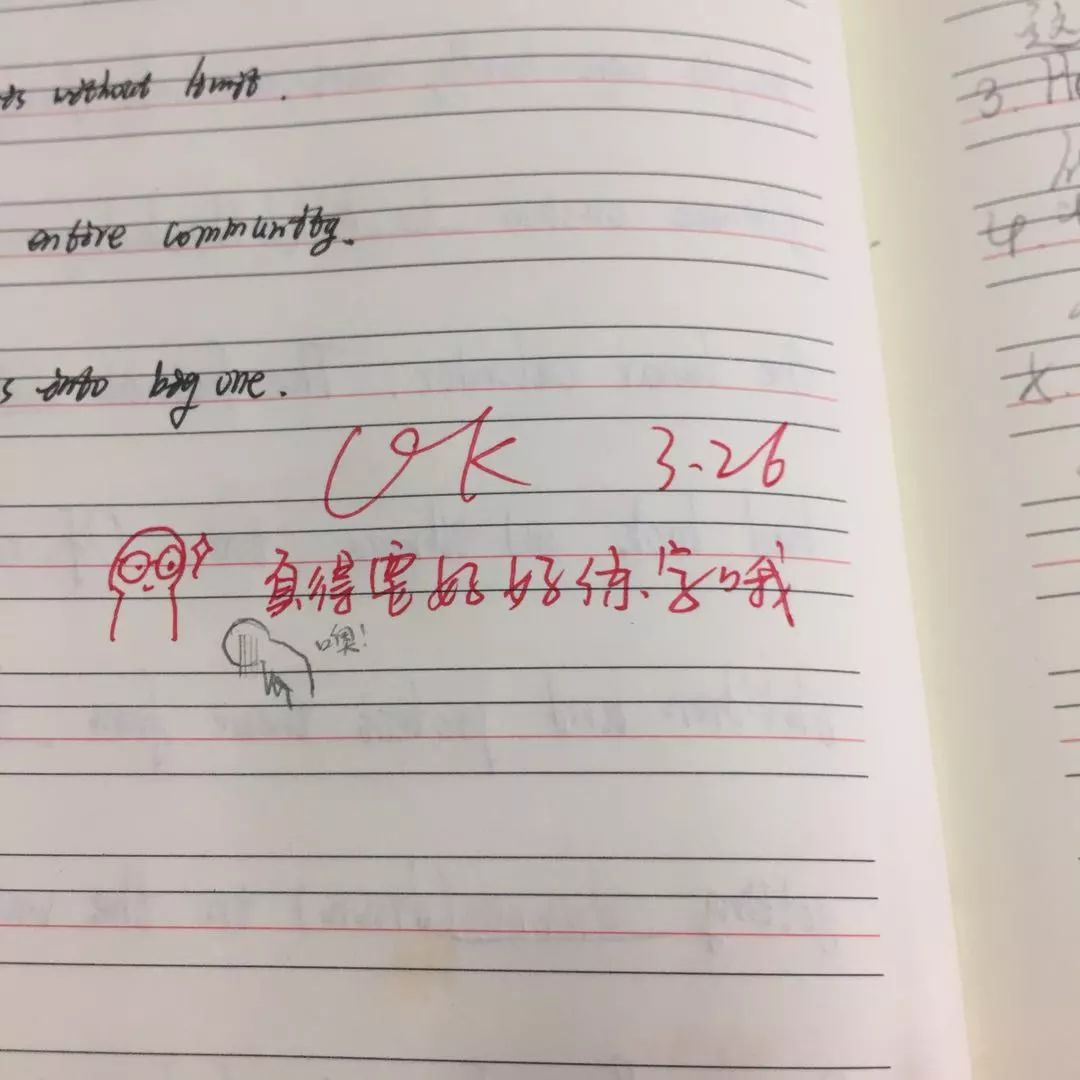 ts without limit.
entire community.
s into big one.
OK 3.26
真得要好好练字哦
噢!
3. H
4